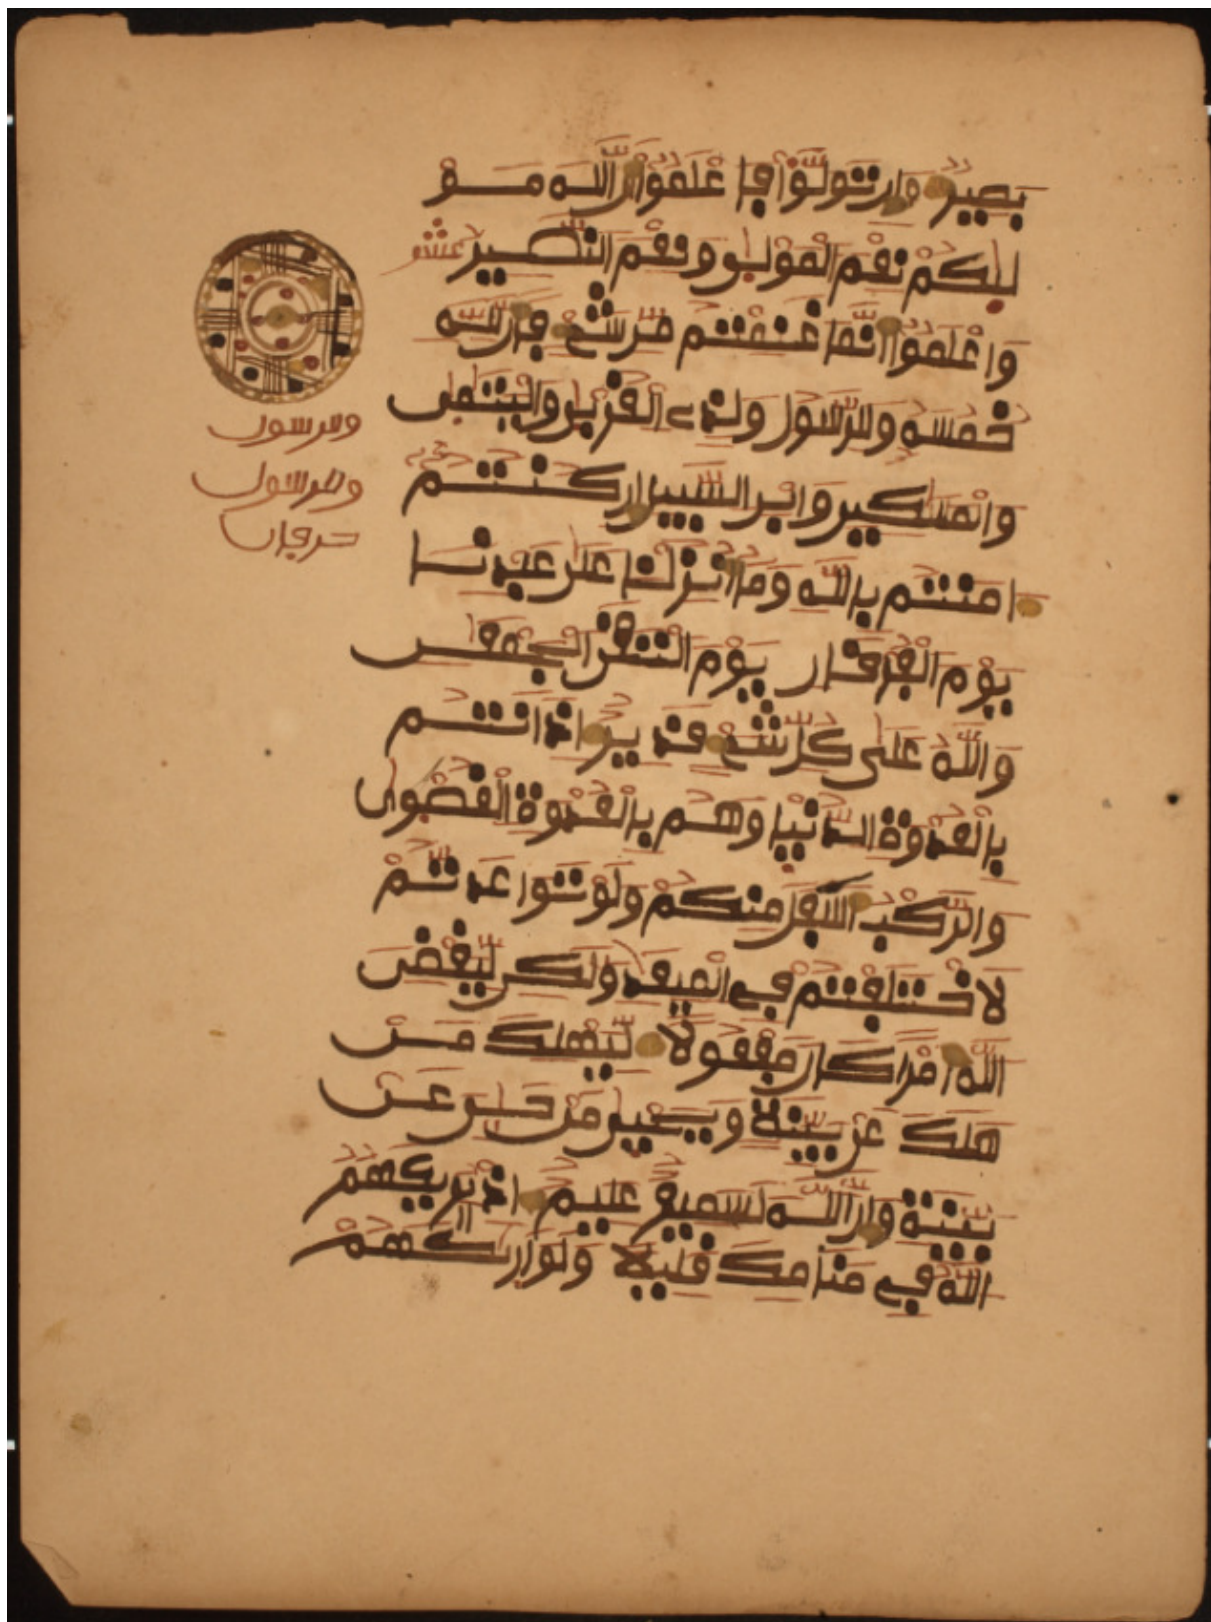 بصير وان تولوا فاعلموا ان الله مو
ليكم نعم المولى ونعم النصير
واعلموا انما غنمتم من شيء فان لله
خمسه وللرسول ولذي القربى واليتمى
والمسكين وابن السبيل ان كنتم
امنتم بالله وما انزلنا على عبدنا
يوم الفرقان يوم التقى الجمعن
والله على كل شيء قدير اذ انتم
بالعدوة الدنيا وهم بالعدوة القصوى
والركب اسفل منكم ولو تواعدتم
لاختلفتم في الميعد ولكن ليقضي
الله امرا كان مفعولا ليهلك من
هلك عن بينة ويحيى من حيي عن
بينة وان الله لسميع عليم اذ يريكهم
الله في منامك قليلا ولو اريكهم
وللرسول
وللرسول